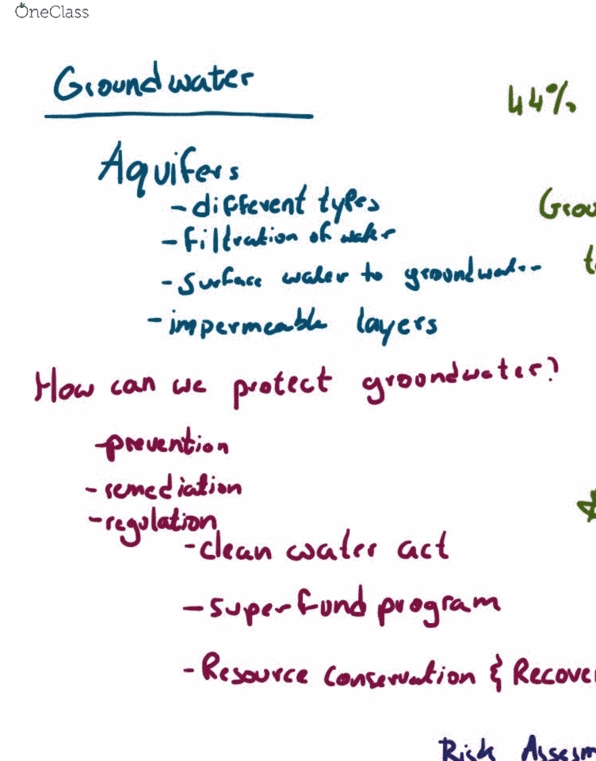 OneClass
Groundwater
44%
Aquifers
- different types
- filtration of water
- Surface water to groundwater
- impermeable layers
How can we protect groundwater?
- prevention
- remediation
- regulation
- clean water act
- Superfund program
- Resource Conservation & Recove
Risk Assesm